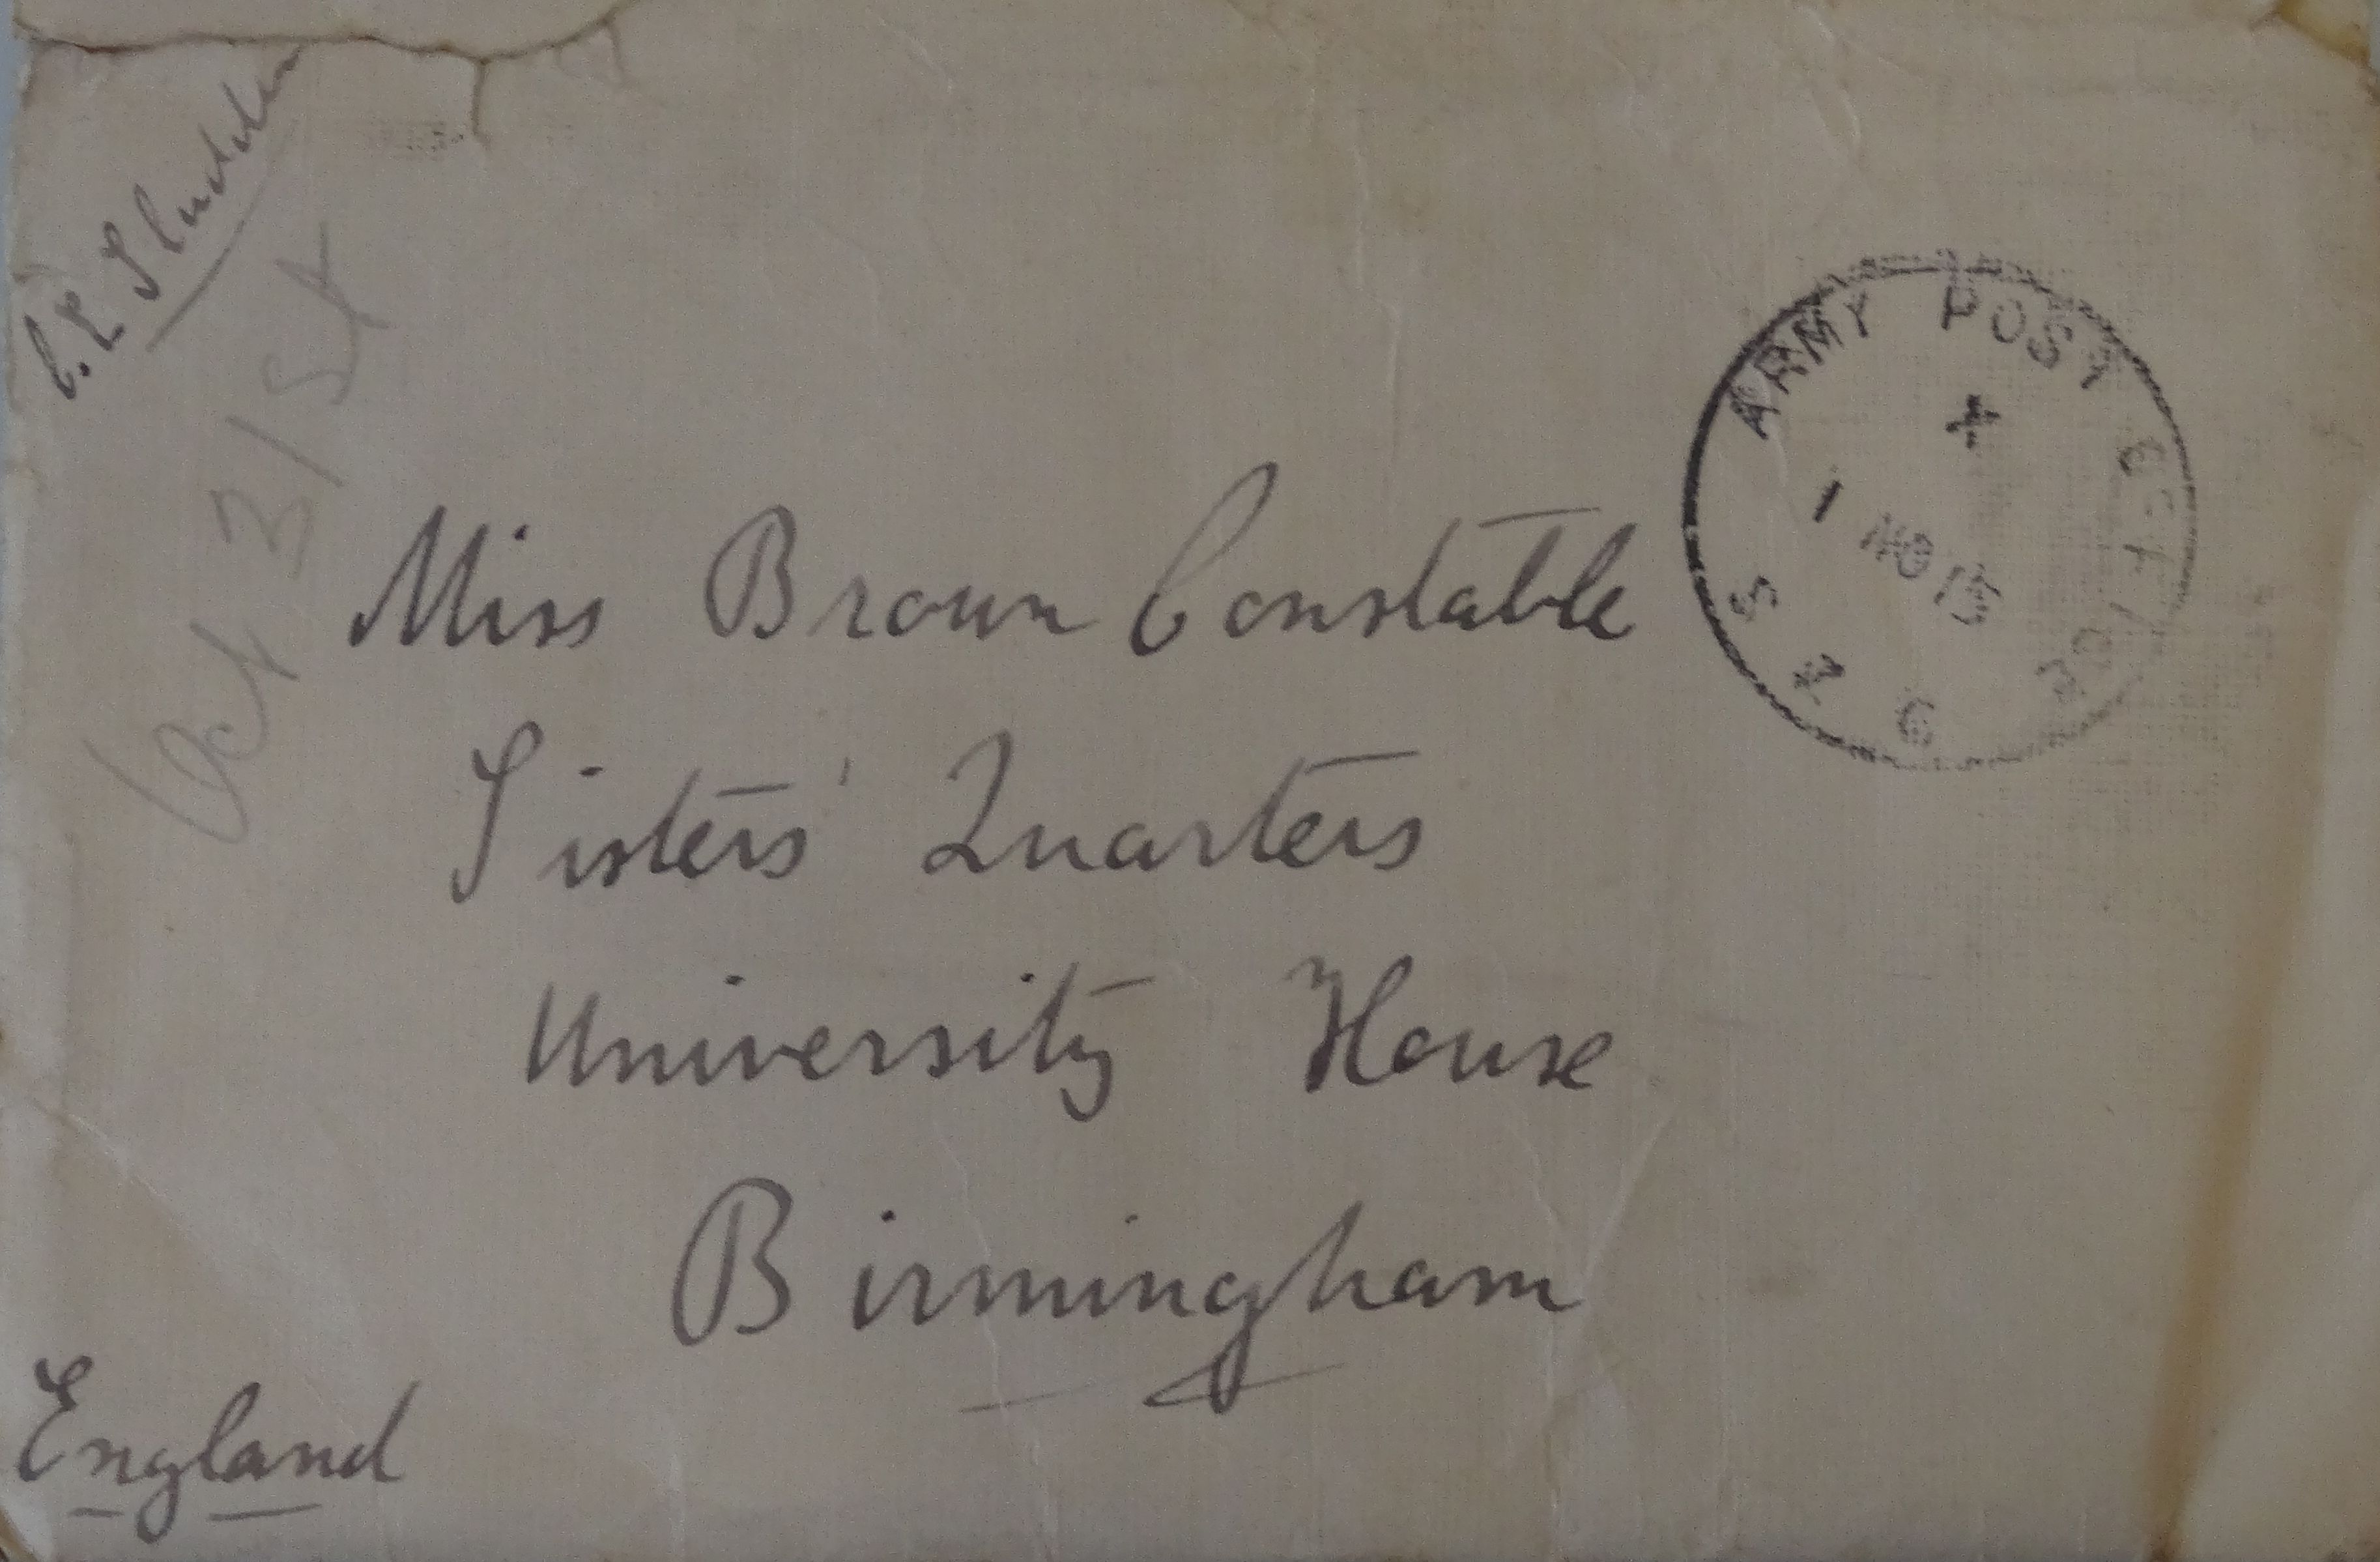 Oct 31st
Miss Brown Constable
Sisters' Quarters
University House
Birmingham
England
ARMY POST OFFICE
1 NO 15
S Z 6